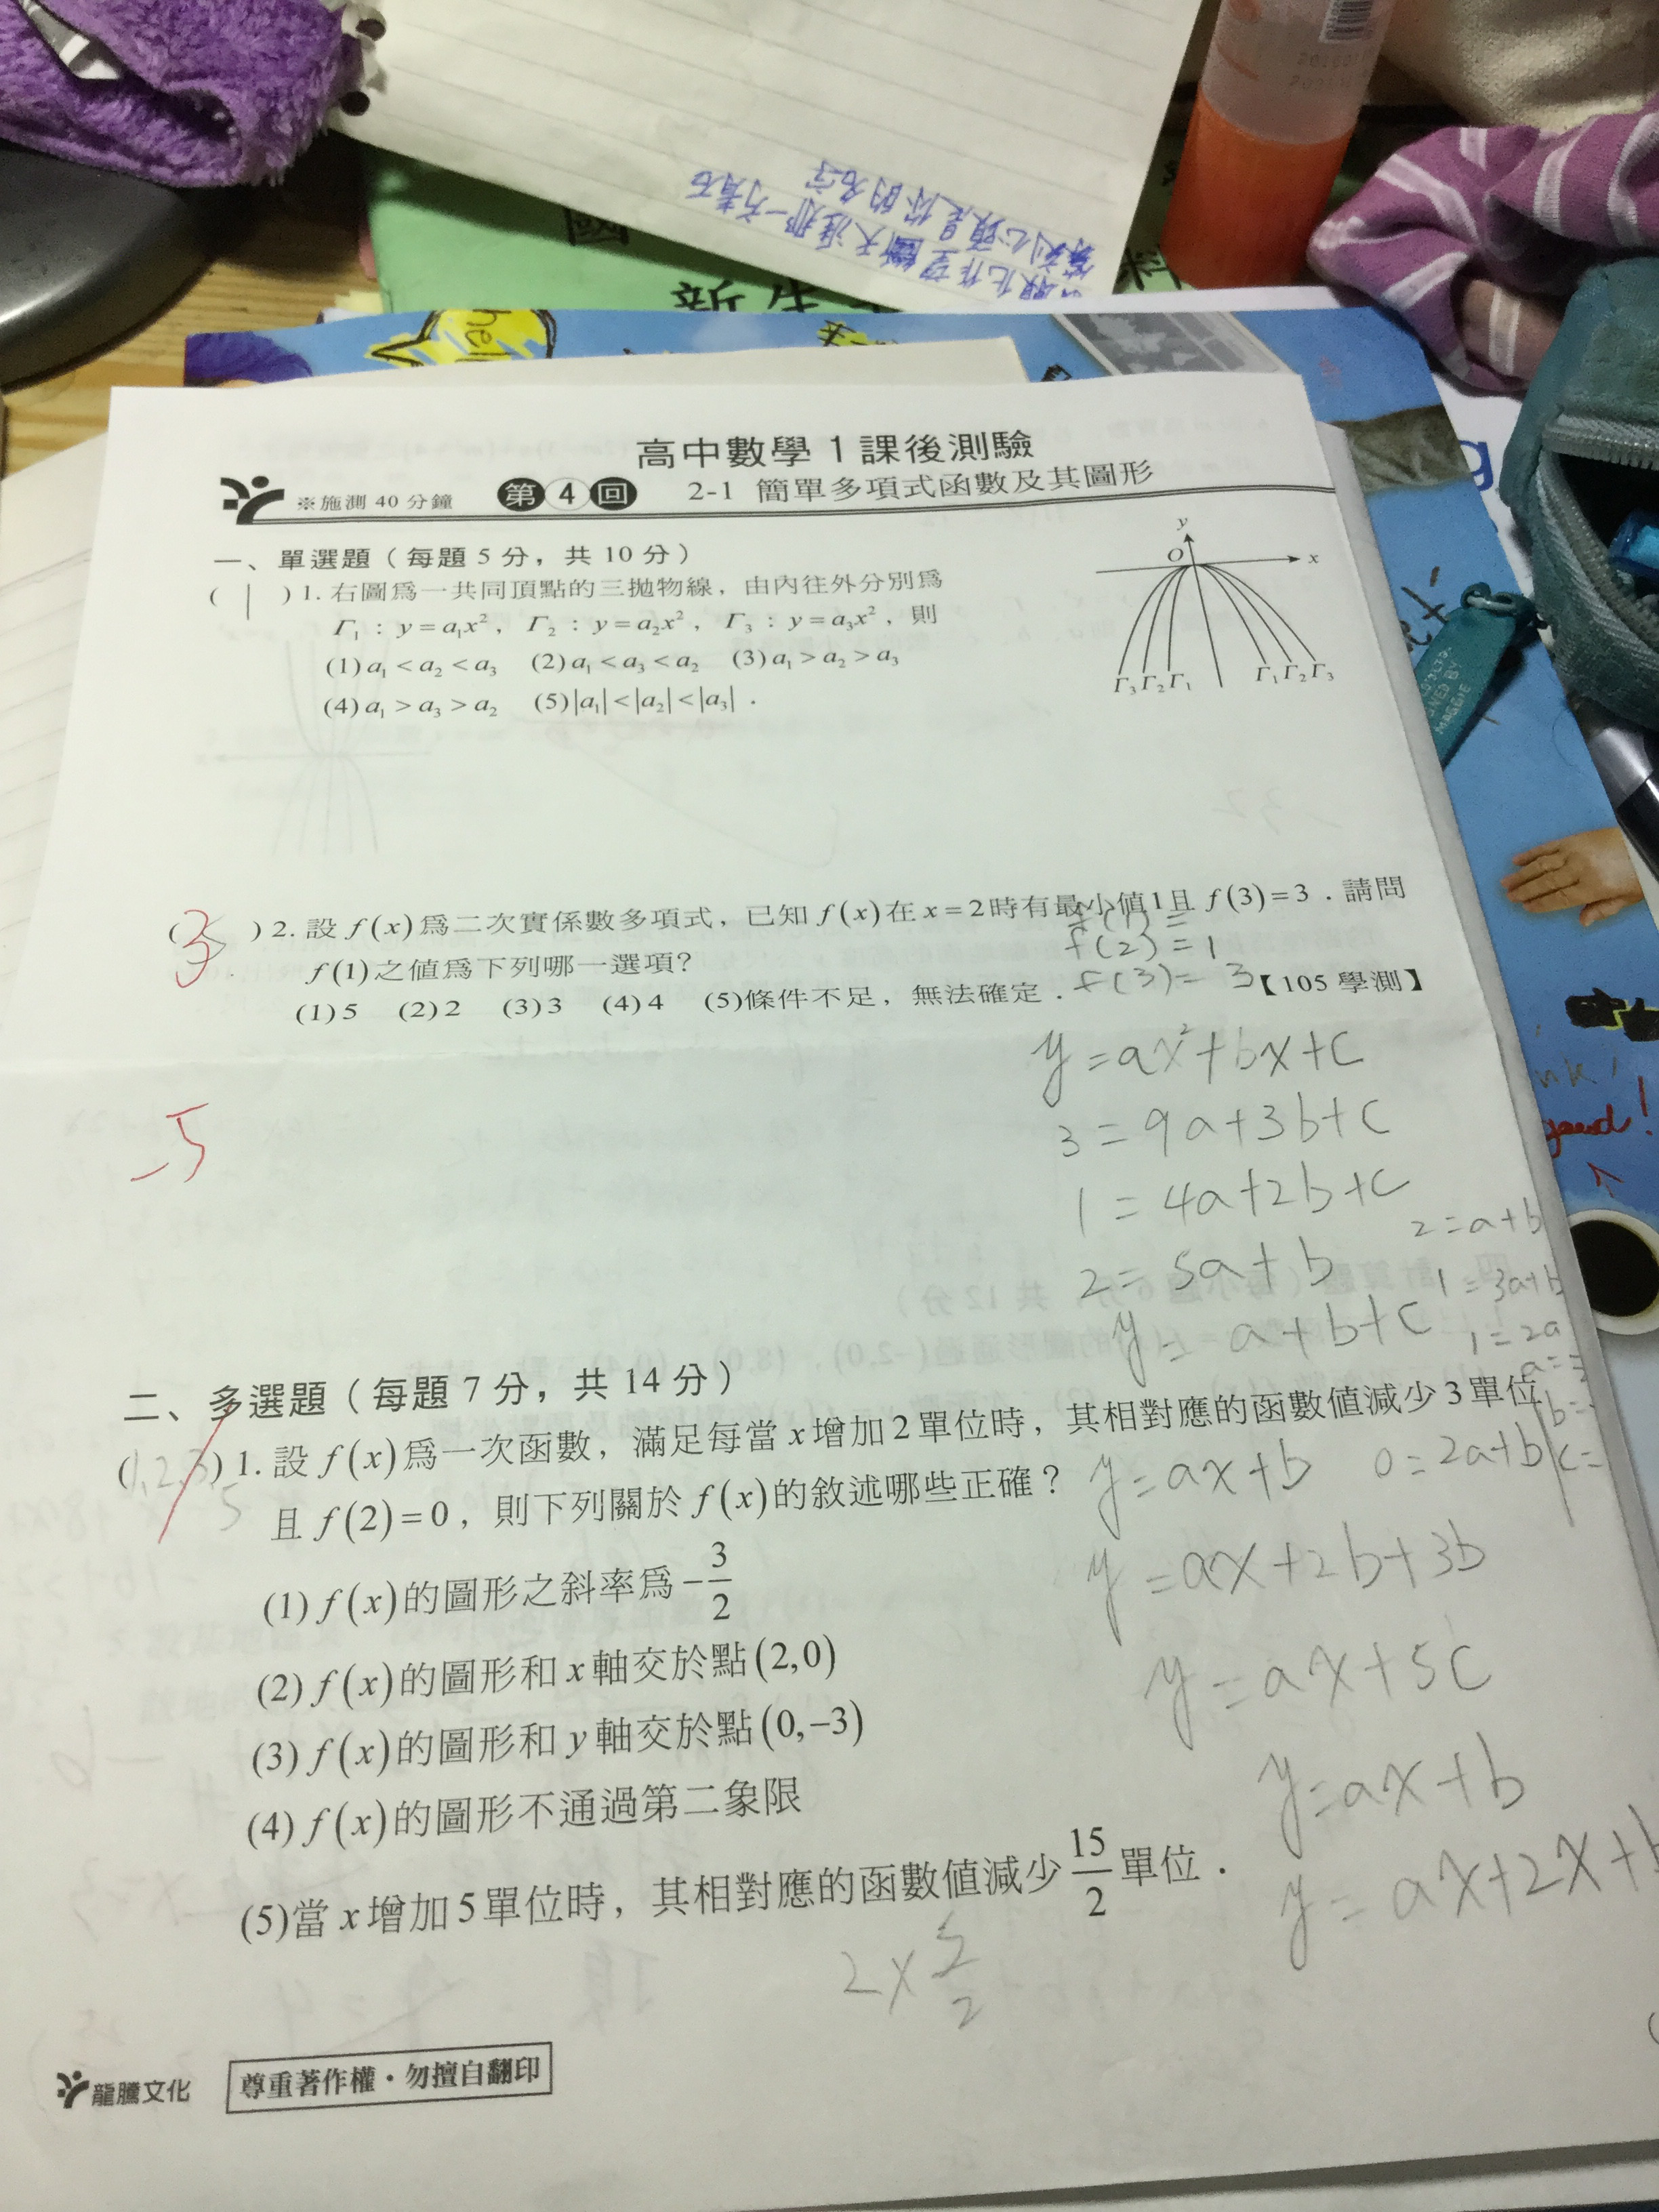 國
新生
料
hel
高中數學 1 課後測驗
※施測 40 分鐘 第 4 回 2-1 簡單多項式函數及其圖形
一、單選題（每題 5 分，共 10 分）
( 1 ) 1. 右圖為一共同頂點的三拋物線，由內往外分別為
Γ₁ : y = a₁x²，Γ₂ : y = a₂x²，Γ₃ : y = a₃x²，則
(1) a₁ < a₂ < a₃ (2) a₁ < a₃ < a₂ (3) a₁ > a₂ > a₃
(4) a₁ > a₃ > a₂ (5) |a₁| < |a₂| < |a₃|．
y
O x
Γ₃ Γ₂ Γ₁ Γ₁ Γ₂ Γ₃
( 3 ) 2. 設 f(x) 為二次實係數多項式，已知 f(x) 在 x = 2 時有最小值 1 且 f(3) = 3．請問
f(1) 之值為下列哪一選項？
(1) 5 (2) 2 (3) 3 (4) 4 (5)條件不足，無法確定．【105 學測】
f(1) =
f(2) = 1
f(3) = 3
-5
y = ax² + bx + c
3 = 9a + 3b + c
1 = 4a + 2b + c
2 = 5a + b
y = a + b + c
2 = a + b
1 = 3a + b
1 = 2a
a =
b =
c =
二、多選題（每題 7 分，共 14 分）
(1,2,3) 1. 設 f(x) 為一次函數，滿足每當 x 增加 2 單位時，其相對應的函數值減少 3 單位
5
且 f(2) = 0，則下列關於 f(x) 的敘述哪些正確？
(1) f(x) 的圖形之斜率為 -3/2
(2) f(x) 的圖形和 x 軸交於點 (2,0)
(3) f(x) 的圖形和 y 軸交於點 (0,-3)
(4) f(x) 的圖形不通過第二象限
(5)當 x 增加 5 單位時，其相對應的函數值減少 15/2 單位．
y = ax + b 0 = 2a + b
y = ax + 2b + 3b
y = ax + 5c
y = ax + b
y = ax + 2x + b
2 × 5/2
龍騰文化 尊重著作權・勿擅自翻印
good!